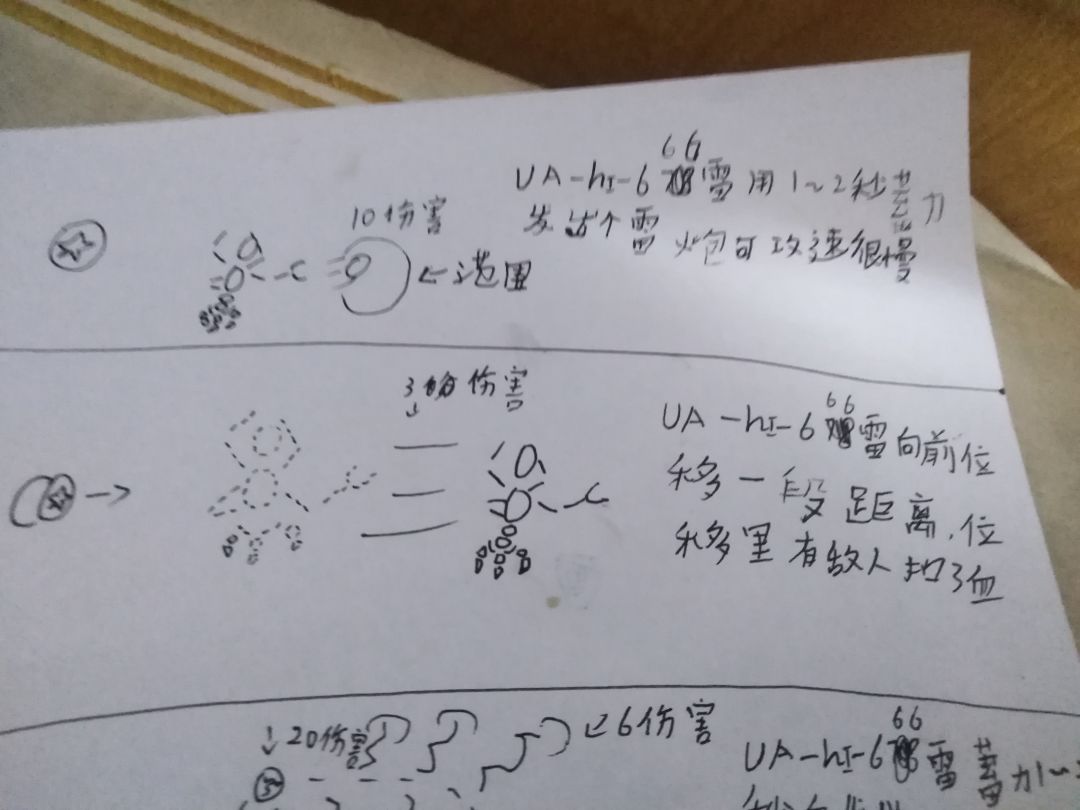 UA-hI-666雷用1~2秒蓄力
发出个雷炮可攻速很慢
10伤害
←范围
3伤害
↓
UA-hI-666雷向前位
移一段距离,位
移里有敌人扣3血
→
↓20伤害
↙6伤害
UA-hI-666雷蓄力1~